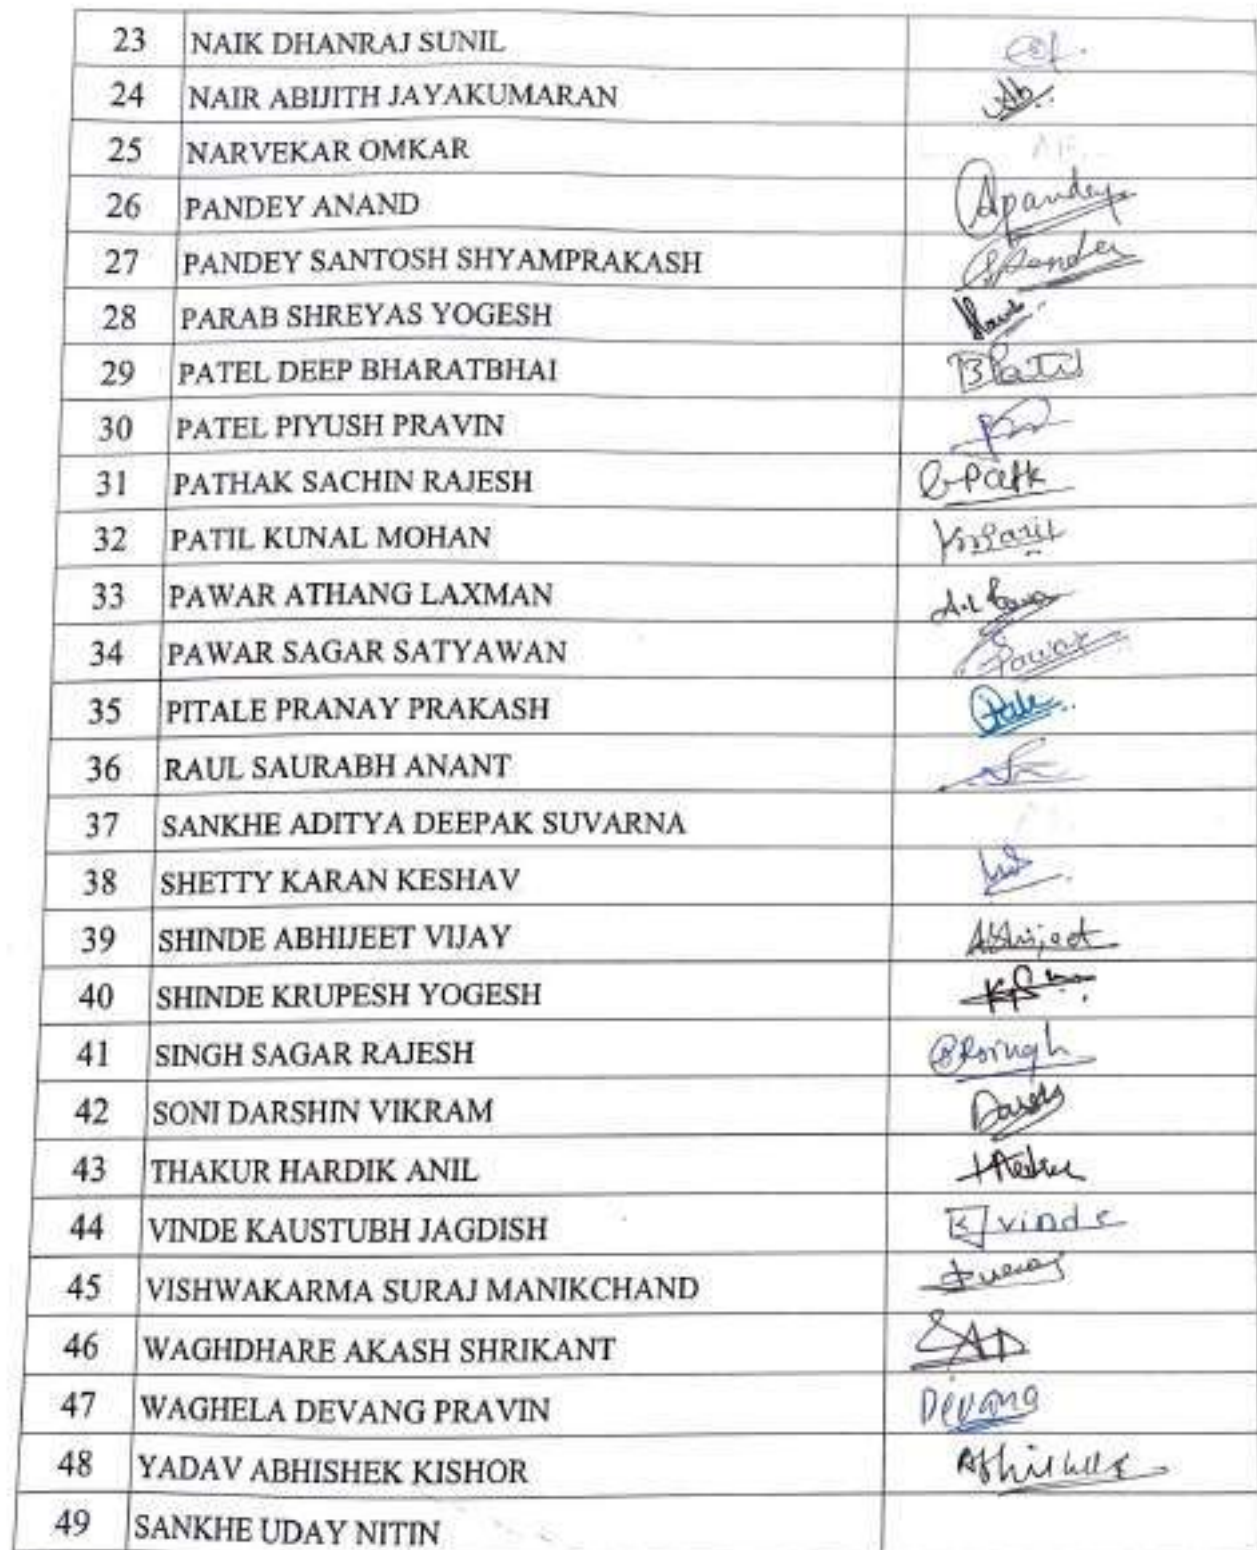 23 NAIK DHANRAJ SUNIL
24 NAIR ABIJITH JAYAKUMARAN Ab
25 NARVEKAR OMKAR
26 PANDEY ANAND Apandey
27 PANDEY SANTOSH SHYAMPRAKASH
28 PARAB SHREYAS YOGESH
29 PATEL DEEP BHARATBHAI
30 PATEL PIYUSH PRAVIN
31 PATHAK SACHIN RAJESH
32 PATIL KUNAL MOHAN
33 PAWAR ATHANG LAXMAN
34 PAWAR SAGAR SATYAWAN Pawar
35 PITALE PRANAY PRAKASH
36 RAUL SAURABH ANANT
37 SANKHE ADITYA DEEPAK SUVARNA
38 SHETTY KARAN KESHAV
39 SHINDE ABHIJEET VIJAY Abhijeet
40 SHINDE KRUPESH YOGESH
41 SINGH SAGAR RAJESH
42 SONI DARSHIN VIKRAM
43 THAKUR HARDIK ANIL
44 VINDE KAUSTUBH JAGDISH KJvinde
45 VISHWAKARMA SURAJ MANIKCHAND
46 WAGHDHARE AKASH SHRIKANT
47 WAGHELA DEVANG PRAVIN Devang
48 YADAV ABHISHEK KISHOR
49 SANKHE UDAY NITIN